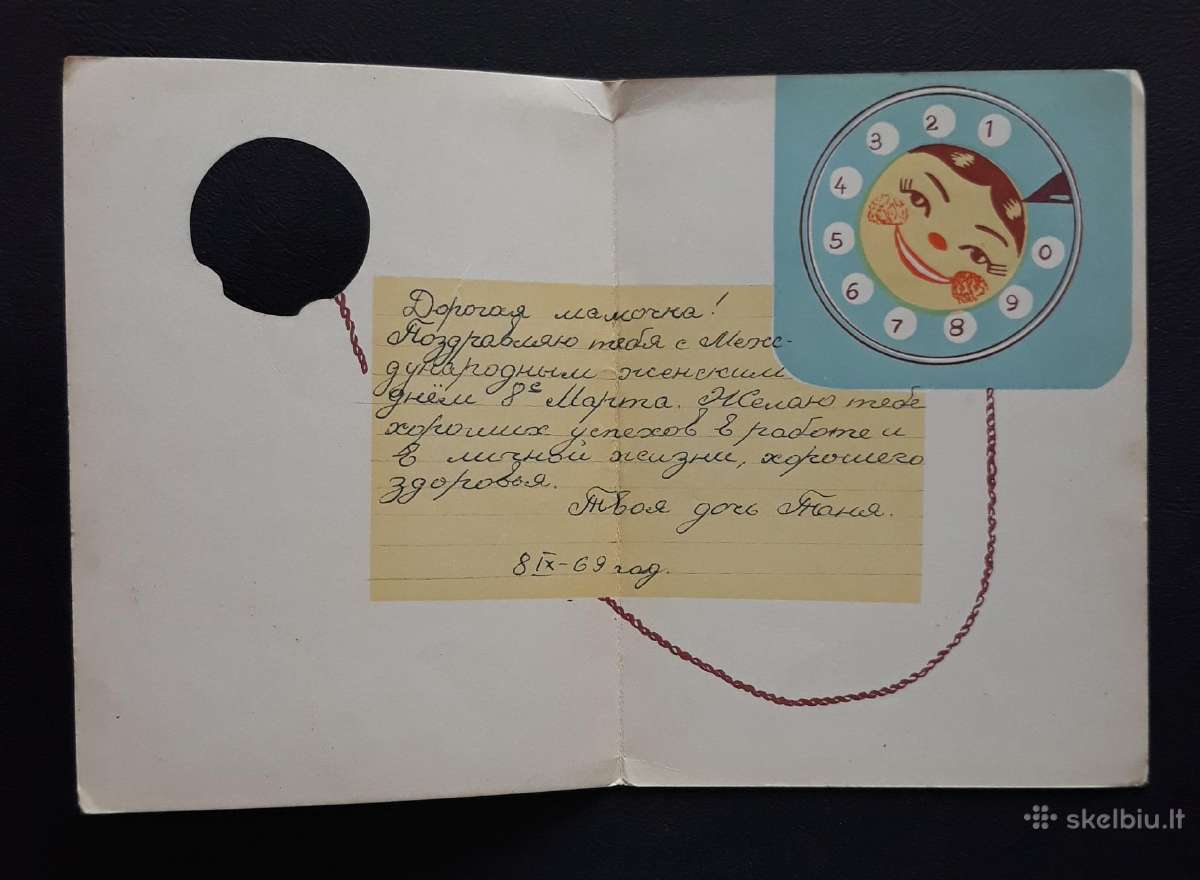 1
2
3
4
5
6
7
8
9
0
Дорогая мамочка!
Поздравляю тебя с Меж-
дународным женским
днём 8е Марта. Желаю тебе
хороших успехов в работе и
в личной жизни, хорошего
здоровья.
Твоя дочь Таня.
8 IX-69 год.
skelbiu.lt